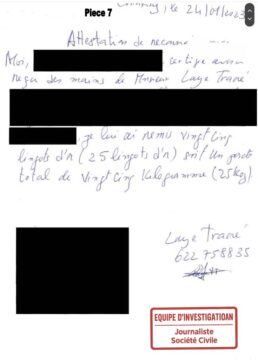 Piece 7
le 24/01/2023
Attestation de reconn
Moi, certifie avoir
reçu des mains de Monsieur Laye Traoré
je lui ai remis vingt cinq
lingots d'or (25 lingots d'or) soit un poids
total de vingt cinq kilogramme (25kg)
Laye Traoré
622 758835
EQUIPE D'INVESTIGATIOAN
Journaliste
Société Civile